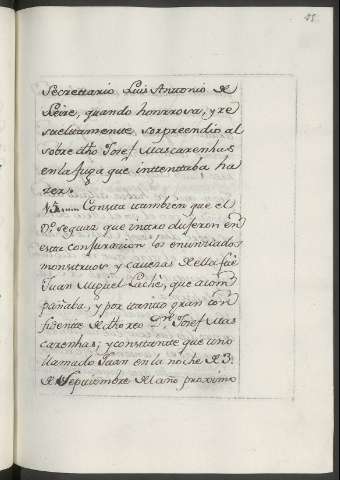 Secrettario Luis Antonio de
Leire, quando honrrosa, y re
sueltamente, sorpreendio al
sobre dho Josef Mascarenhas
en la fuga que inttenttaba ha
zer.
N5..... Consta también que el
que intro dujeron en
esta conjurazion los enunziados
monstruos y cavezas de ella fué
Juan Miguel que acom
pañaba, y por tanto gran con
fidente de dho reo Dn. Josef Mas
carenhas; y constante que uno
llamado Juan en la noche de 3.
de Septiembre del año proximo